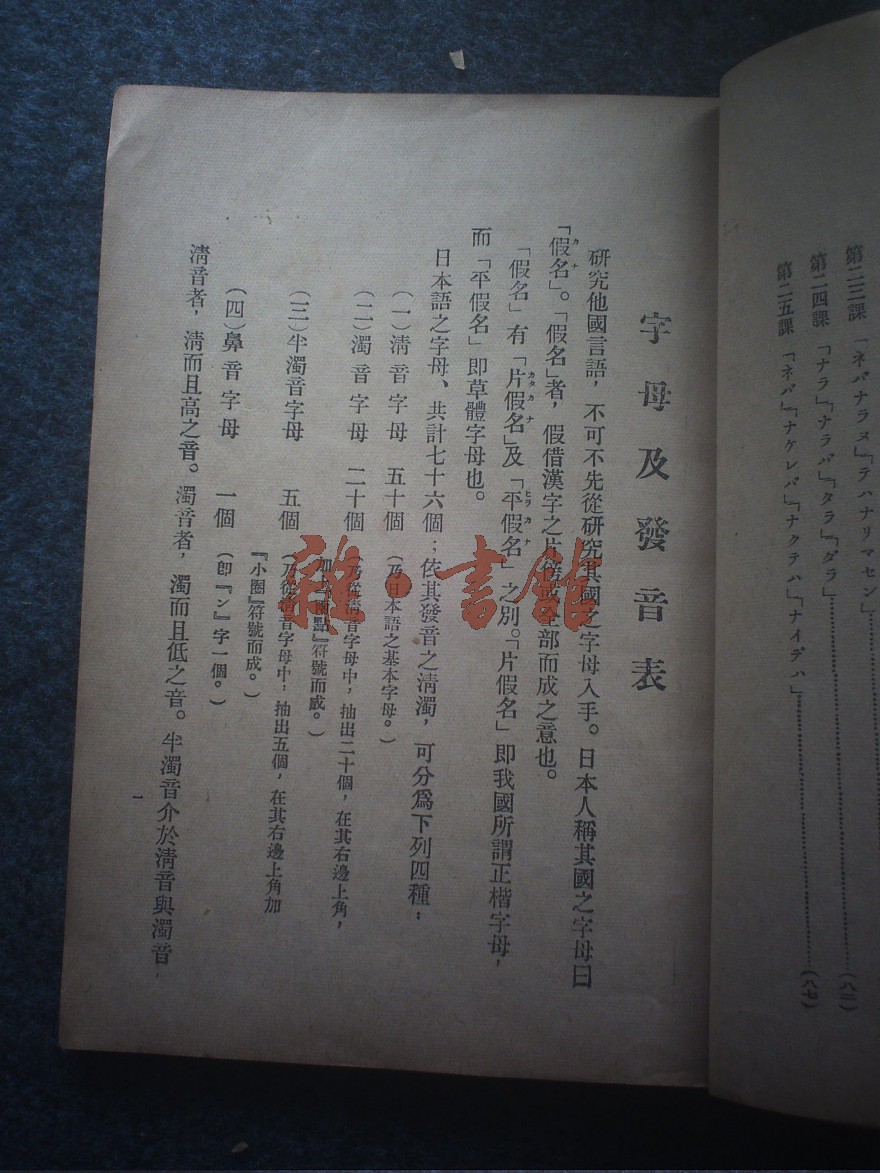 第二三課 「ネバナラヌ」「テハナリマセン」……(八二)
第二四課 「ナラ」「ナラバ」「タラ」「ダラ」……
第二五課 「ネバ」「ナケレバ」「ナクテハ」「ナイデハ」……(八七)
字母及發音表
研究他國言語，不可不先從研究其國之字母入手。日本人稱其國之字母曰
「假名」。「假名」者，假借漢字之片傍或全部而成之意也。
カナ
「假名」有「片假名」及「平假名」之別。「片假名」即我國所謂正楷字母，
カタカナ
ヒラカナ
而「平假名」即草體字母也。
日本語之字母、共計七十六個；依其發音之清濁，可分爲下列四種：
(一)清音字母 五十個 (乃日本語之基本字母。)
(二)濁音字母 二十個 (乃從清音字母中，抽出二十個，在其右邊上角，
加以『兩點』符號而成。)
(三)半濁音字母 五個 (乃從清音字母中，抽出五個，在其右邊上角加
『小圈』符號而成。)
(四)鼻音字母 一個 (即『ン』字一個。)
清音者，清而且高之音。濁音者，濁而且低之音。半濁音介於清音與濁音
一
雜·書館